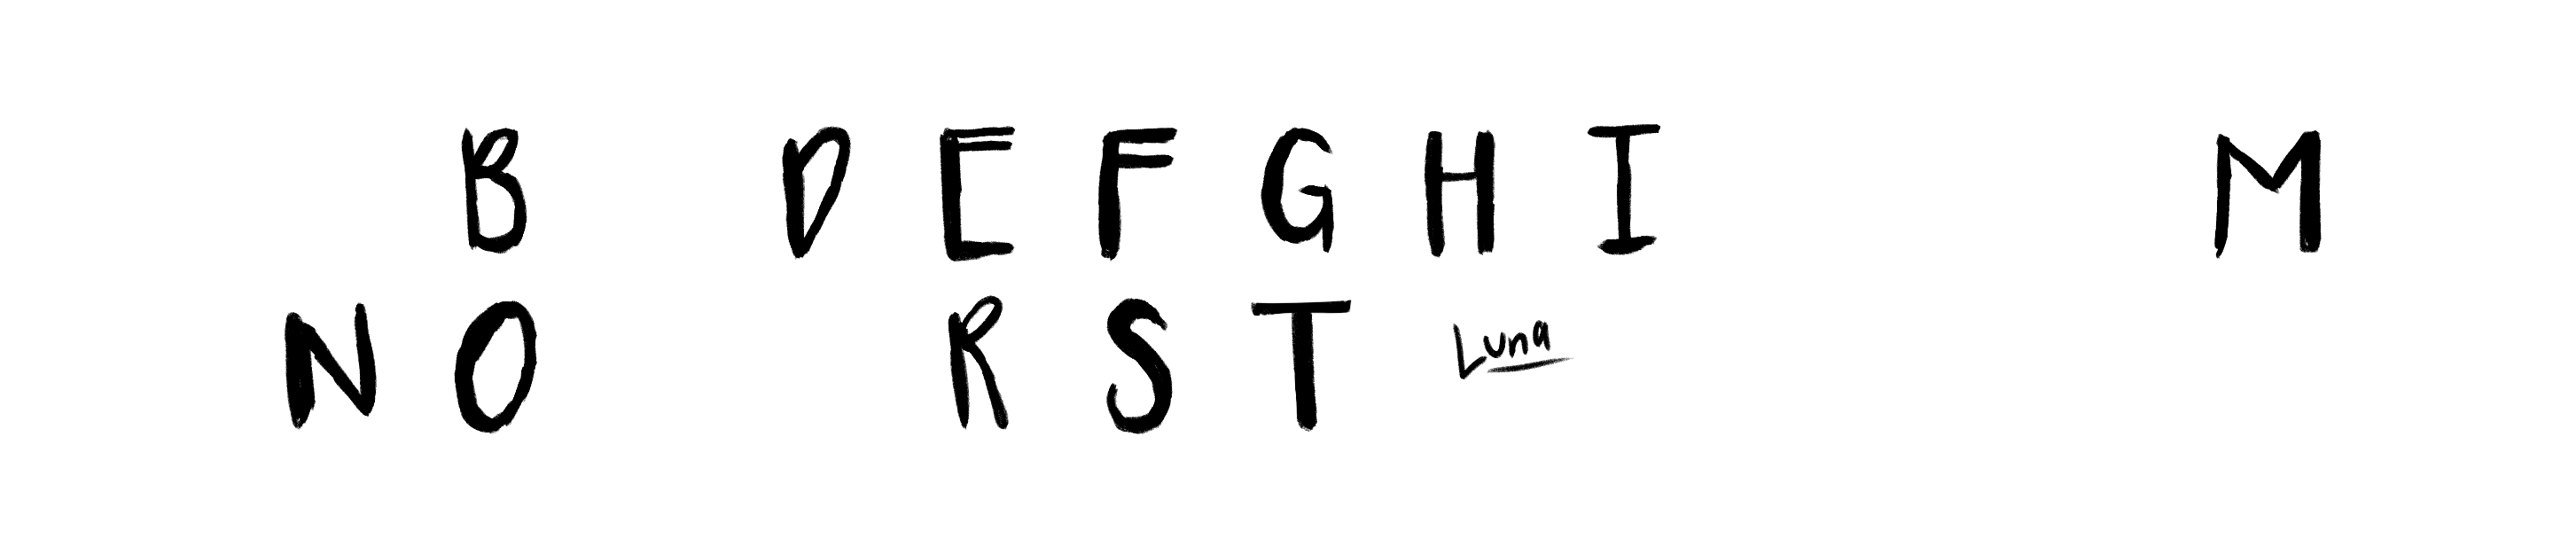 B D E F G H I M
N O R S T Luna